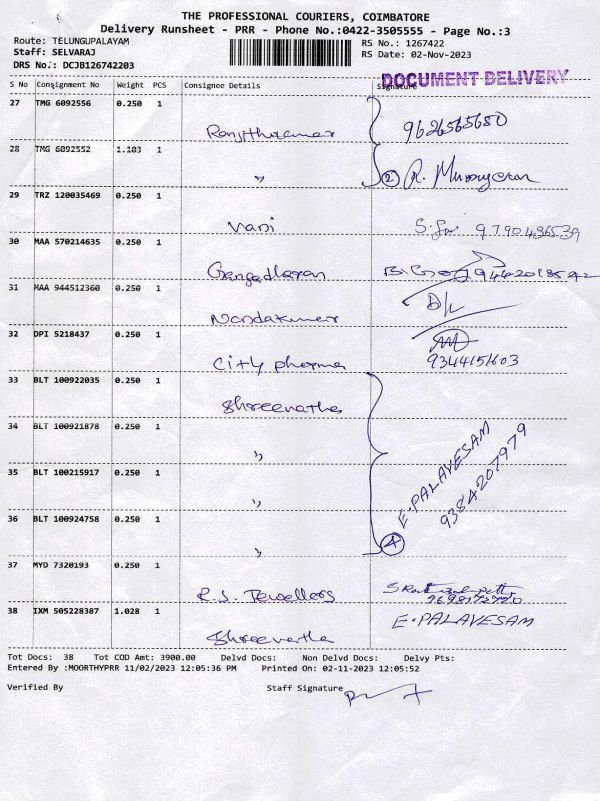 THE PROFESSIONAL COURIERS, COIMBATORE
Delivery Runsheet - PRR - Phone No.:0422-3505555 - Page No.:3
Route: TELUNGUPALAYAM RS No.: 1267422
Staff: SELVARAJ RS Date: 02-Nov-2023
DRS No.: DCJB126742203
DOCUMENT DELIVERY
S No Consignment No Weight PCS Consignee Details Signature
27 TMG 6092556 0.250 1 Ranjithkumar 9626565650
28 TMG 6092552 1.103 1 " 2 R.
29 TRZ 120035469 0.250 1 Vani
30 MAA 570214635 0.250 1 Gangadharan
31 MAA 944512360 0.250 1 Nandakumar
32 DPI 5218437 0.250 1 City pharma 9344151603
33 BLT 100922035 0.250 1 Shreevatha
34 BLT 100921878 0.250 1 "
35 BLT 100215917 0.250 1 "
36 BLT 100924758 0.250 1 "
4 E. PALAVESAM
9384207979
37 MYD 7320193 0.250 1 R.S. Jewellers
38 IXM 505228387 1.028 1 Shreevatha E. PALAVESAM
Tot Docs: 38 Tot COD Amt: 3900.00 Delvd Docs: Non Delvd Docs: Delvy Pts:
Entered By :MOORTHYPRR 11/02/2023 12:05:36 PM Printed On: 02-11-2023 12:05:52
Verified By Staff Signature